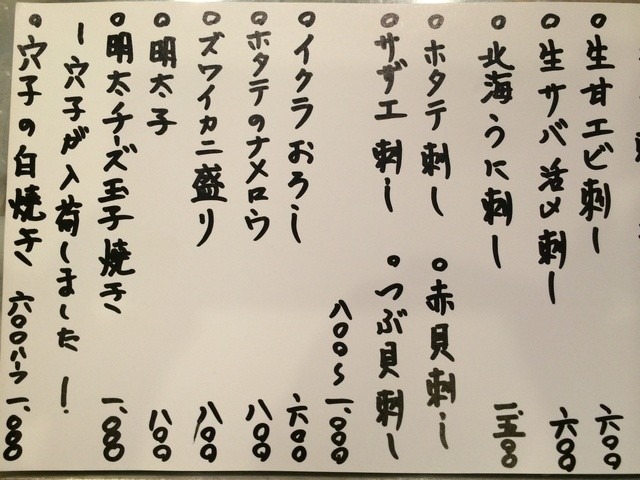 生甘エビ刺し 六〇〇
生サバ活〆刺し 六〇〇
北海うに刺し 一、五〇〇
ホタテ刺し 赤貝刺し
サザエ刺し つぶ貝刺し
八〇〇～一、〇〇〇
イクラおろし 六〇〇
ホタテのナメロウ 八〇〇
ズワイカニ盛り 八〇〇
明太子 八〇〇
明太チーズ玉子焼き 一、〇〇〇
ー穴子が入荷しました！
穴子の白焼き 六〇〇ハーフ 一、〇〇〇